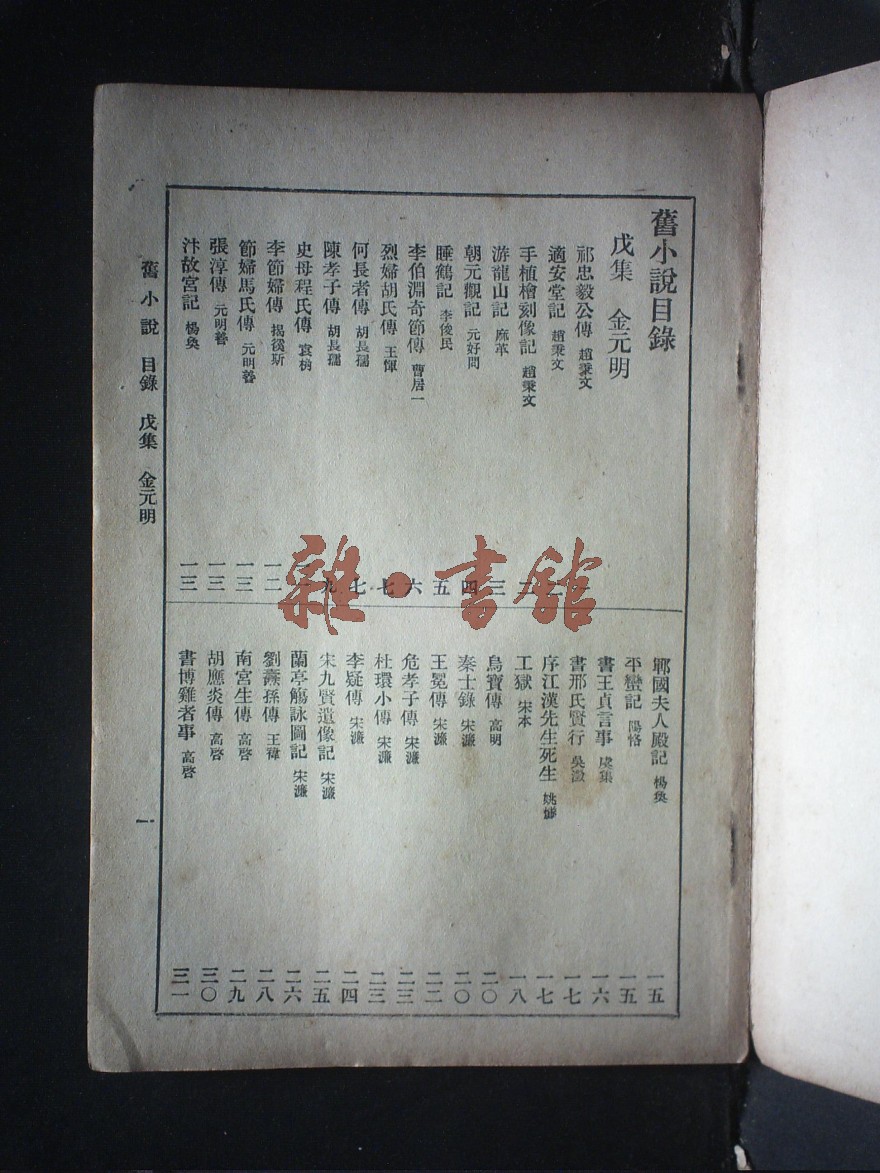 舊小說目錄
戊集　金元明
祁忠毅公傳　趙秉文
適安堂記　趙秉文
手植檜刻像記　趙秉文
游龍山記　麻革　三
朝元觀記　元好問　四
睡鶴記　李俊民　五
李伯淵奇節傳　曹居一　六
烈婦胡氏傳　王惲　七
何長者傳　胡長孺　七
陳孝子傳　胡長孺　九
史母程氏傳　袁桷
李節婦傳　揭傒斯　一二
節婦馬氏傳　元明善　一三
張淳傳　元明善　一三
汴故宮記　楊奐　一三
鄆國夫人殿記　楊奐　一五
平蠻記　陽恪　一五
書王貞言事　虞集　一六
書邢氏賢行　吳澂　一七
序江漢先生死生　姚燧　一七
工獄　宋本　一八
烏寶傳　高明　二〇
秦士錄　宋濂　二〇
王冕傳　宋濂　二二
危孝子傳　宋濂　二三
杜環小傳　宋濂　二三
李疑傳　宋濂　二四
宋九賢遺像記　宋濂　二五
蘭亭觴詠圖記　宋濂　二六
劉燾孫傳　王褘　二八
南宮生傳　高啓　二九
胡應炎傳　高啓　三〇
書博雞者事　高啓　三一
舊小說　目錄　戊集　金元明
一
雜·書館